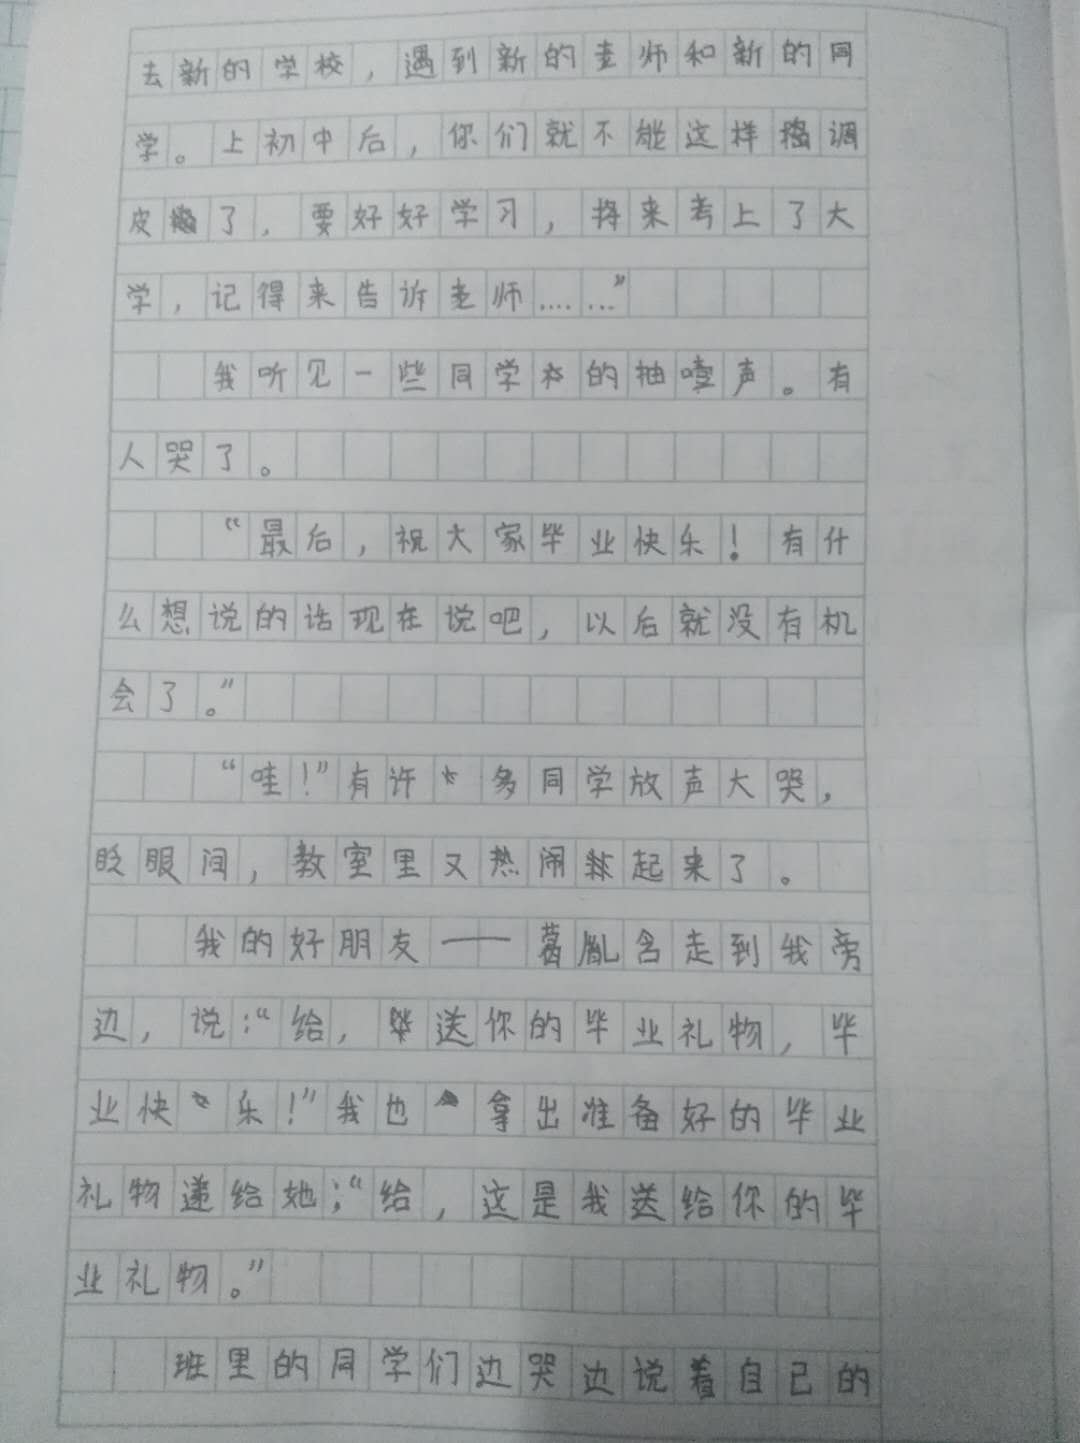 去新的学校，遇到新的老师和新的同
学。上初中后，你们就不能这样捣调
皮了，要好好学习，将来考上了大
学，记得来告诉老师……”
我听见一些同学的抽噎声。有
人哭了。
“最后，祝大家毕业快乐！有什
么想说的话现在说吧，以后就没有机
会了。”
“哇！”有许多同学放声大哭，
眨眼间，教室里又热闹起来了。
我的好朋友——葛胤含走到我旁
边，说：“给，送你的毕业礼物，毕
业快乐！”我也拿出准备好的毕业
礼物递给她：“给，这是我送给你的毕
业礼物。”
班里的同学们边哭边说着自己的